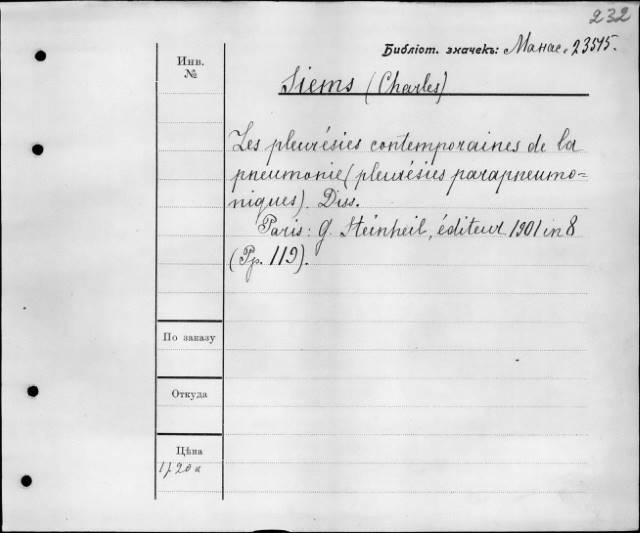 232
Библіот. значекъ: Манас. 23515.
Инв.
№
Siems (Charles)
Les pleurésies contemporaines de la
pneumonie (pleurésies parapneumo=
niques). Diss.
Paris: G. Steinheil, éditeur 1901 in 8
(Pp. 119).
По заказу
Откуда
Цѣна